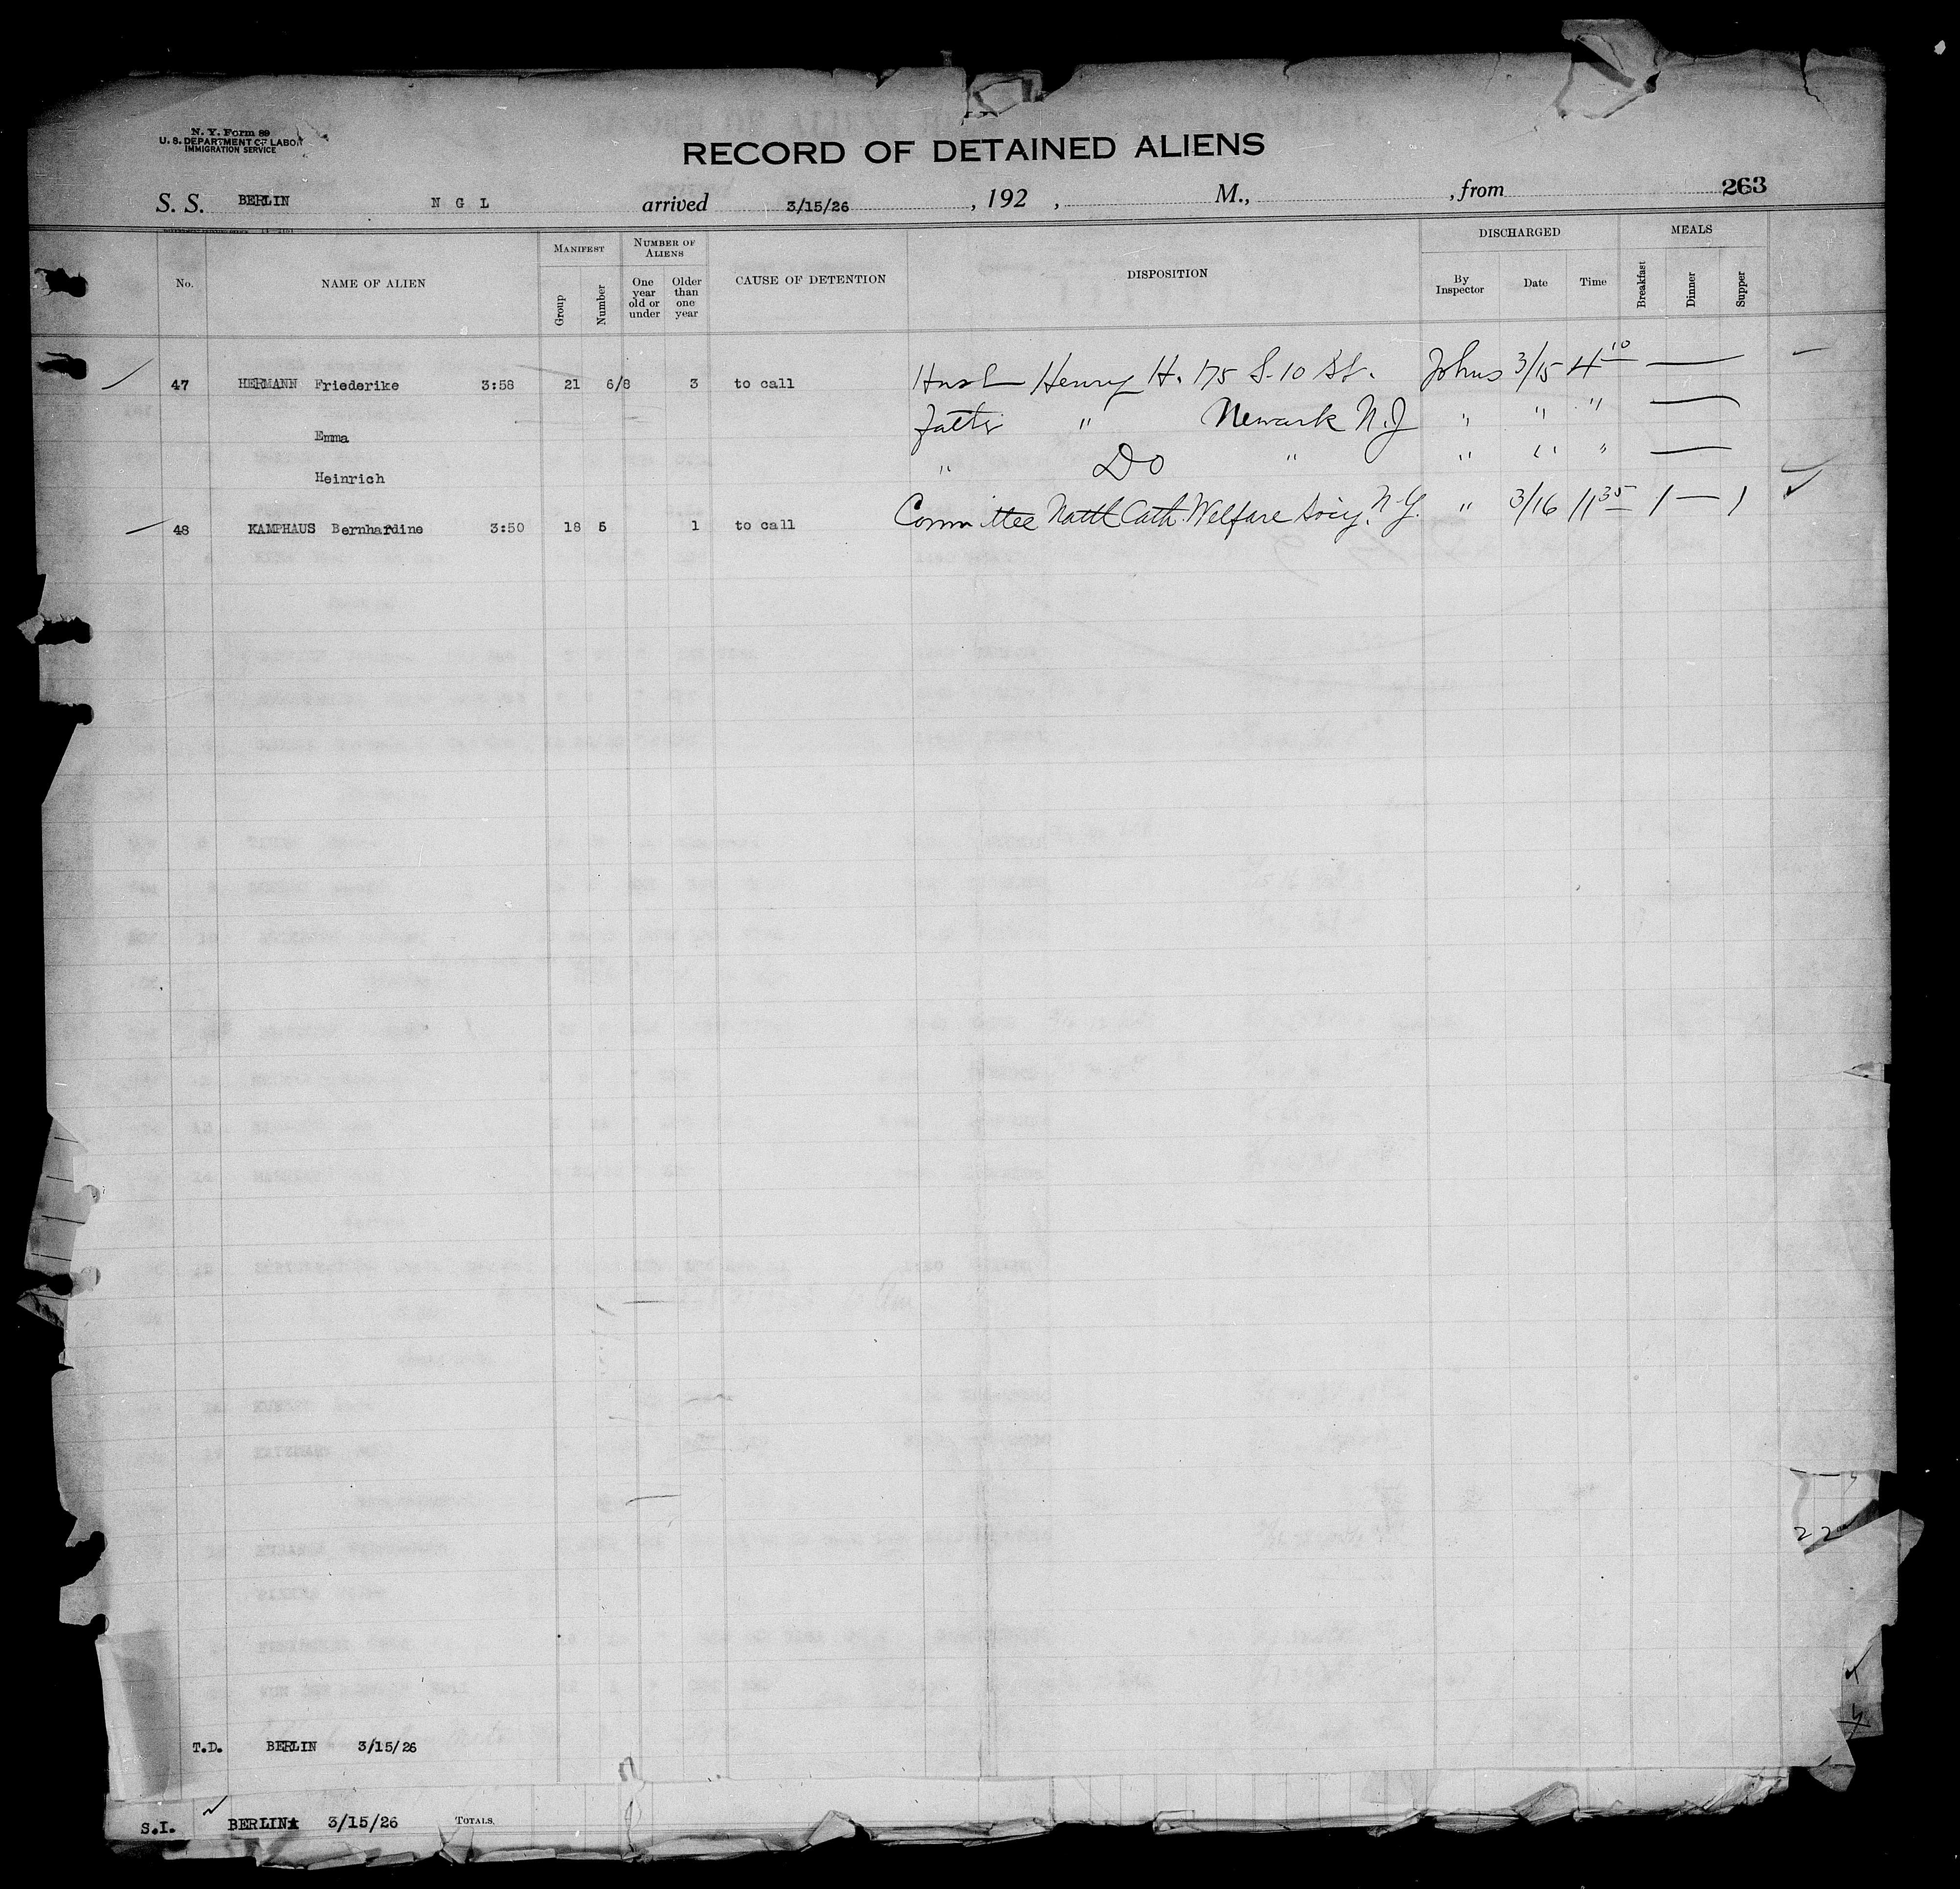 N. Y. Form 89
U. S. DEPARTMENT OF LABOR
IMMIGRATION SERVICE
RECORD OF DETAINED ALIENS
S. S. BERLIN N G L arrived 3/15/26, 192 , M., , from 263
No. NAME OF ALIEN MANIFEST Group Number NUMBER OF ALIENS One year old or under Older than one year CAUSE OF DETENTION DISPOSITION DISCHARGED By Inspector Date Time MEALS Breakfast Dinner Supper
47 HERMANN Friederike 3:58 21 6/8 3 to call Husb Henry H. 175 S. 10 St. Johns 3/15 4 10 —
Emma Father " Newark N.J " " " —
Heinrich " Do " " " " —
48 KAMPHAUS Bernhardine 3:50 18 5 1 to call Committee Natl Cath. Welfare Socy. N.Y. " 3/16 11 35 1 — 1
22
T.D. BERLIN 3/15/26
S.I. BERLIN 3/15/26 TOTALS